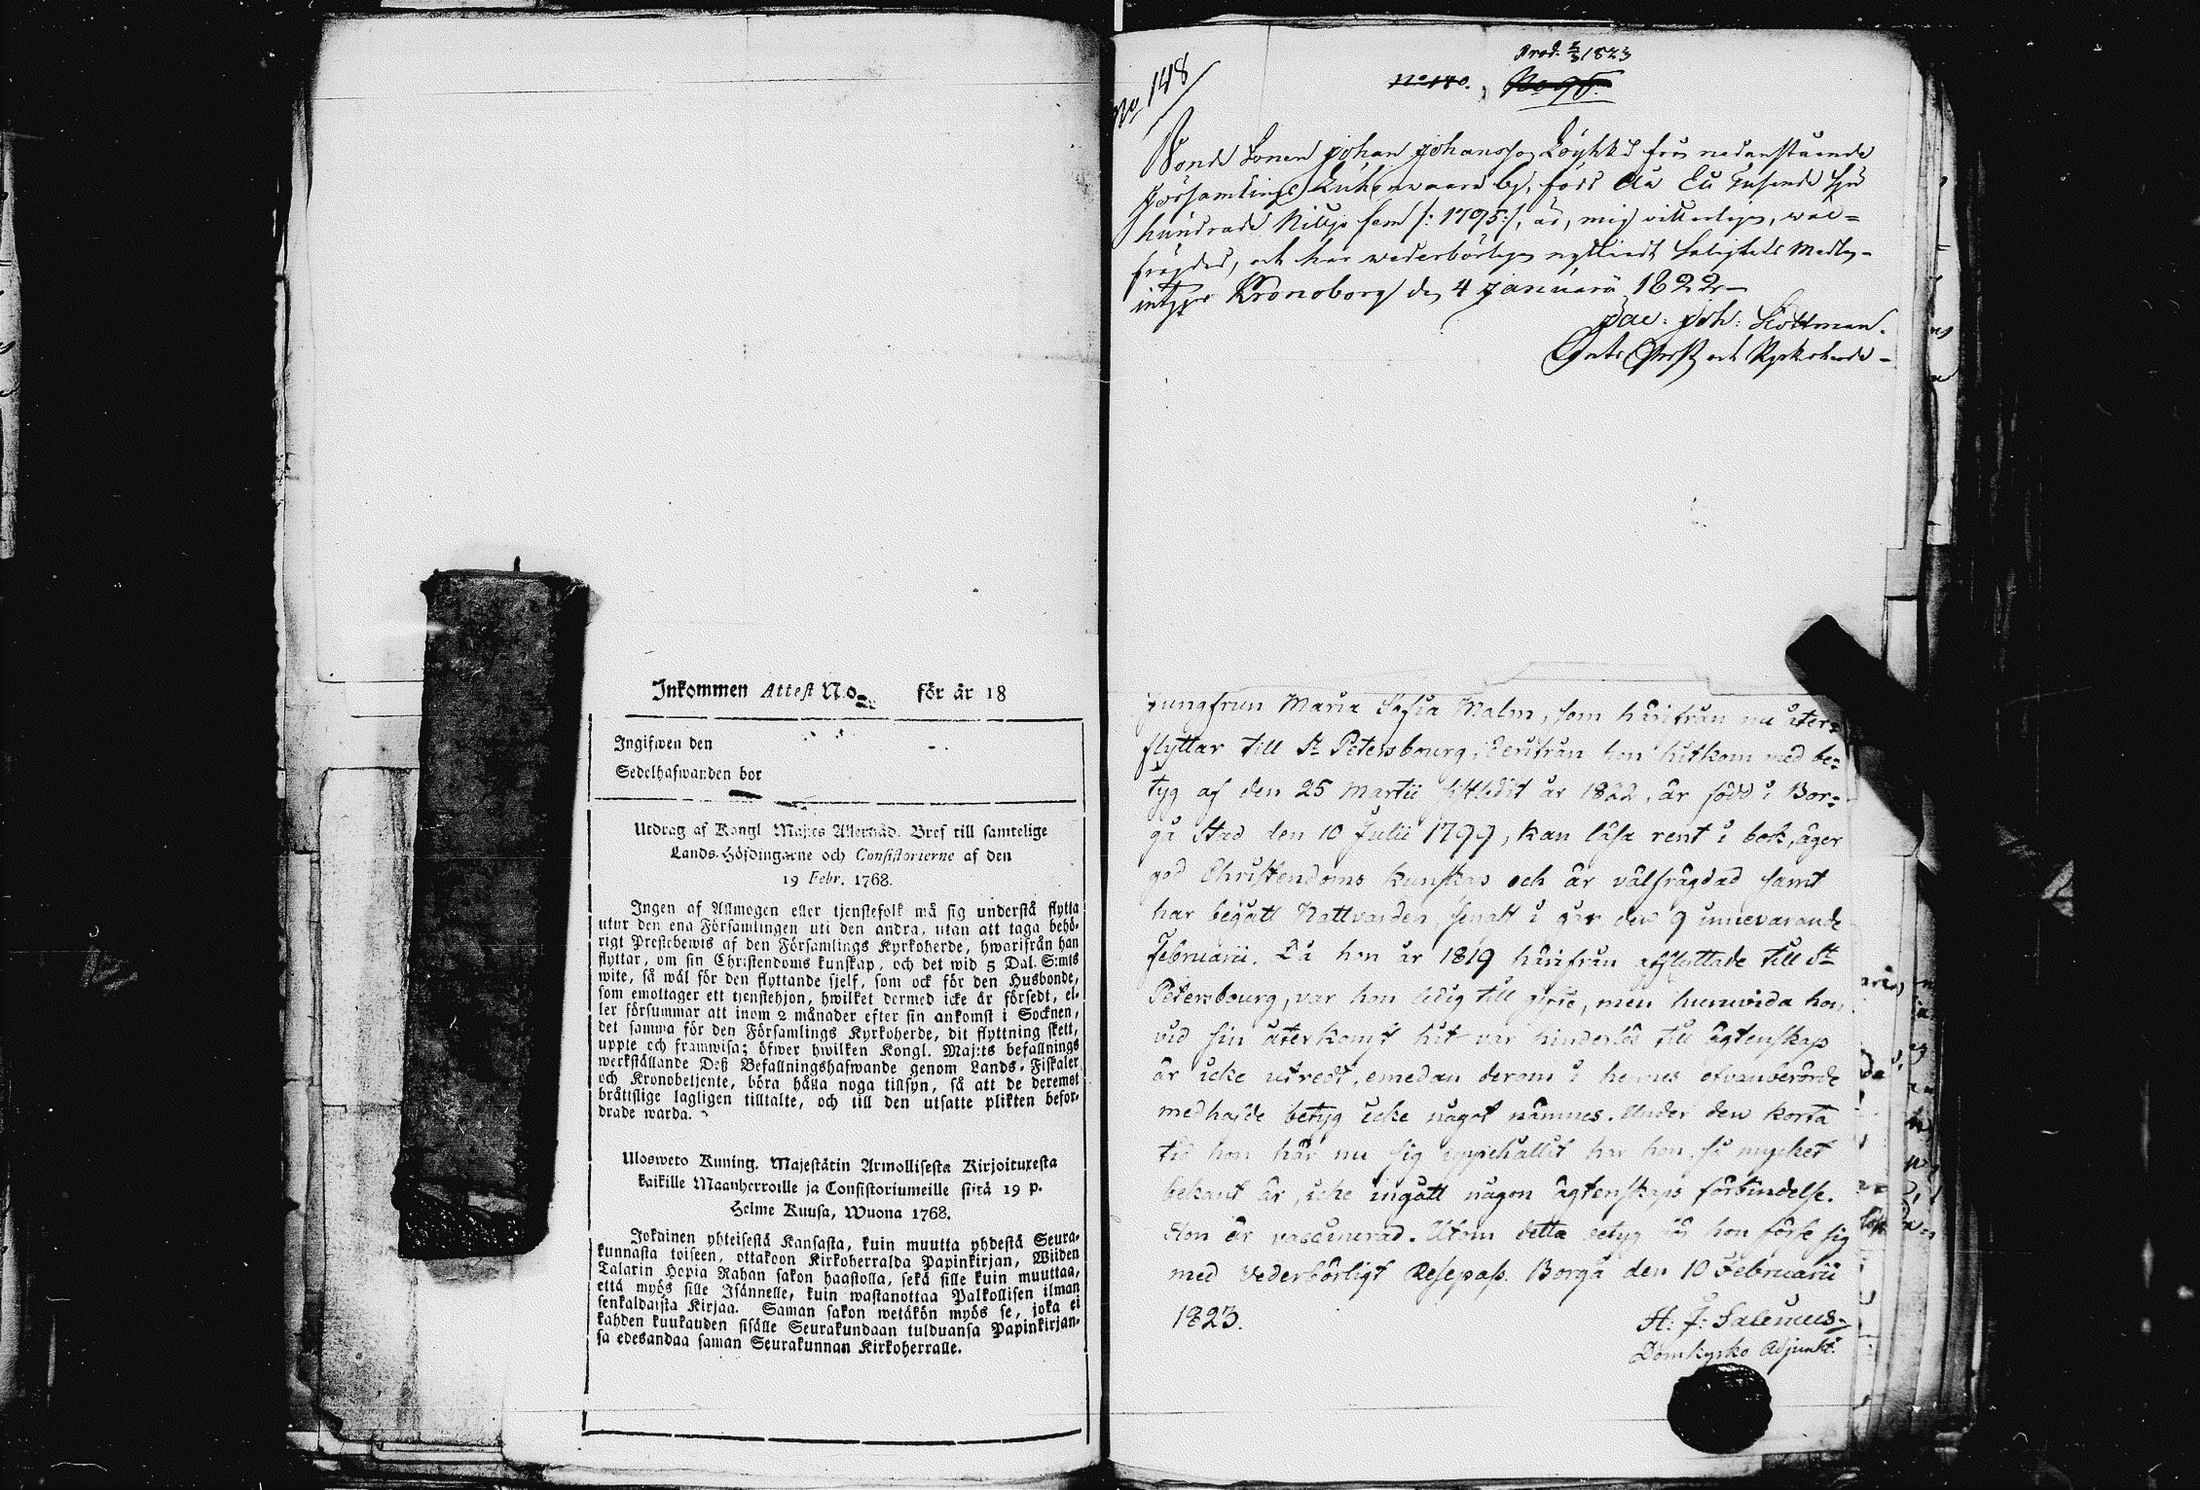 Inkommen Attest N:o för år 18
Ingifwen den
Sedelhafwanden bor
Utdrag af Kongl Maj:ts Allernåd. Bref till samtelige
Lands-Höfdingarne och Consistorierne af den
19 Febr. 1768.
Ingen af Allmogen eller tjenstefolk må sig understå flytta
utur den ena Församlingen uti den andra, utan att taga behö-
rigt Prestebewis af den Församlings Kyrkoherde, hwarifrån han
flyttar, om sin Christendoms kunskap, och det wid 5 Dal. S:mts
wite, så wäl för den flyttande sjelf, som ock för den Husbonde,
som emottager ett tjenstehjon, hwilket dermed icke är försedt, el-
ler försummar att inom 2 månader efter sin ankomst i Socknen,
det samma för den Församlings Kyrkoherde, dit flyttning skett,
uppte och framwisa; öfwer hwilken Kongl. Maj:ts befallnings
werkställande Deß Befallningshafwande genom Lands-Fiskaler
och Kronobetjente, böra hålla noga tillsyn, så att de deremot
bråttslige lagligen tilltalte, och till den utsatte plikten befor-
drade warda.
Ulosweto Kuning. Majestätin Armollisesta Kirjoituxesta
kaikille Maanherroille ja Consistoriumeille siitä 19 p.
Helme Kuusa, Wuona 1768.
Jokainen yhteisestä Kansasta, kuin muutta yhdestä Seura-
kunnasta toiseen, ottakoon Kirkoherralda Papinkirjan, Wiiden
Talarin Hopia Rahan sakon haastolla, sekä sille kuin muuttaa,
että myös sille Isännelle, kuin wastanottaa Palkollisen ilman
senkaldaista Kirjaa. Saman sakon wetäkön myös se, joka ei
kahden kuukauden sisälle Seurakundaan tulduansa Papinkirjan-
sa edesandaa saman Seurakunnan Kirkoherralle.
Prod. 1823
No 148
No 140.
Bonde Sonen Johan Johansson från nedanstående
Församling by, född År Ett Tusende Sju
hundrade Nittjo fem /: 1795 :/, är, mig vitterligen, wäl=
frägdad, och har wederbörligen nyttjadt Salighets Medlen
Kronoborg den 4 Januarii 1822
Jac: Joh: Hottman.
och Kyrkoherde
Jungfrun Maria Sofia Malm, som härifrån nu åter=
flyttar till St Petersbourg, derifrån hon hitkom med be=
tyg af den 25 Martii sistledit år 1822, är född i Bor=
gå Stad den 10 Julii 1799, kan läsa rent i bok, äger
god Christendoms kunskap och är välfrägdad samt
har begått Nattvarden senast i går den 9 innevarande
Februarii. Då hon år 1819 härifrån afflyttade till St
Petersbourg, var hon ledig till gifte, men huruvida hon
vid sin återkomst hit var hinderlös till ägtenskap
är icke utredt, emedan derom i hennes ofvanberörde
medhafde betyg icke något nämnes. Under den korta
tid hon här nu sig uppehållit har hon, så mycket
bekant är, icke ingått någon ägtenskaps förbindelse.
Hon är vaccinerad. Utom detta betyg bör hon förse sig
med vederbörligt Resepass. Borgå den 10 Februarii
1823.
H: J: Salenius
Domkyrko Adjunkt.